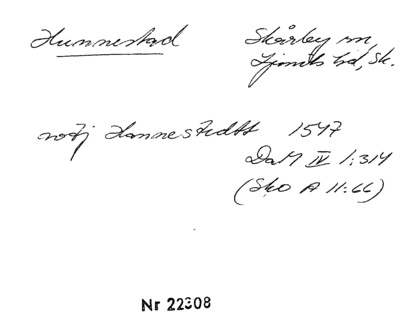 Hunnestad Skårby sn,
Ljunits hd, Sk.
Hannestedtt 1547
DaM IV 1:314
(Sko A 11:66)
Nr 22308